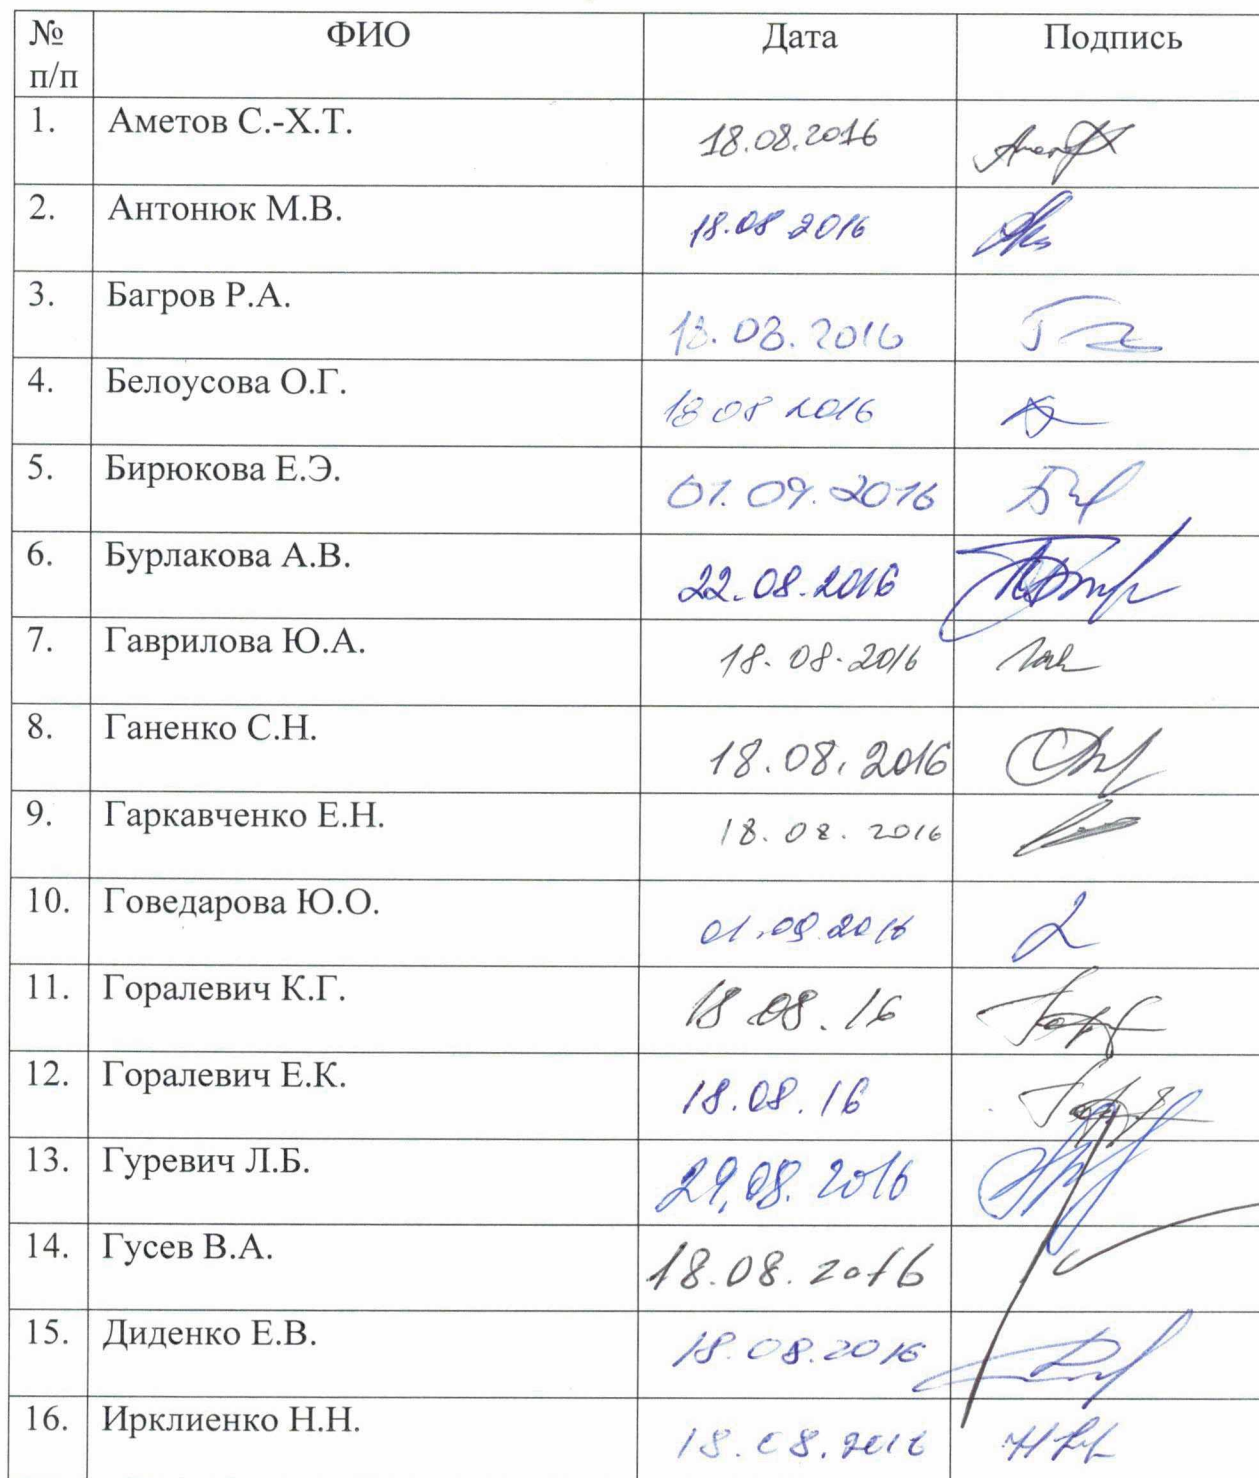 № п/п ФИО Дата Подпись
1. Аметов С.-Х.Т. 18.08.2016
2. Антонюк М.В. 18.08 2016
3. Багров Р.А. 18.08.2016
4. Белоусова О.Г. 18 08 2016
5. Бирюкова Е.Э. 01.09.2016
6. Бурлакова А.В. 22.08.2016
7. Гаврилова Ю.А. 18.08.2016
8. Ганенко С.Н. 18.08.2016
9. Гаркавченко Е.Н. 18.08.2016
10. Говедарова Ю.О. 01.09.2016
11. Горалевич К.Г. 18.08.16
12. Горалевич Е.К. 18.08.16
13. Гуревич Л.Б. 29.08.2016
14. Гусев В.А. 18.08.2016
15. Диденко Е.В. 18.08.2016
16. Ирклиенко Н.Н. 18.08.2016